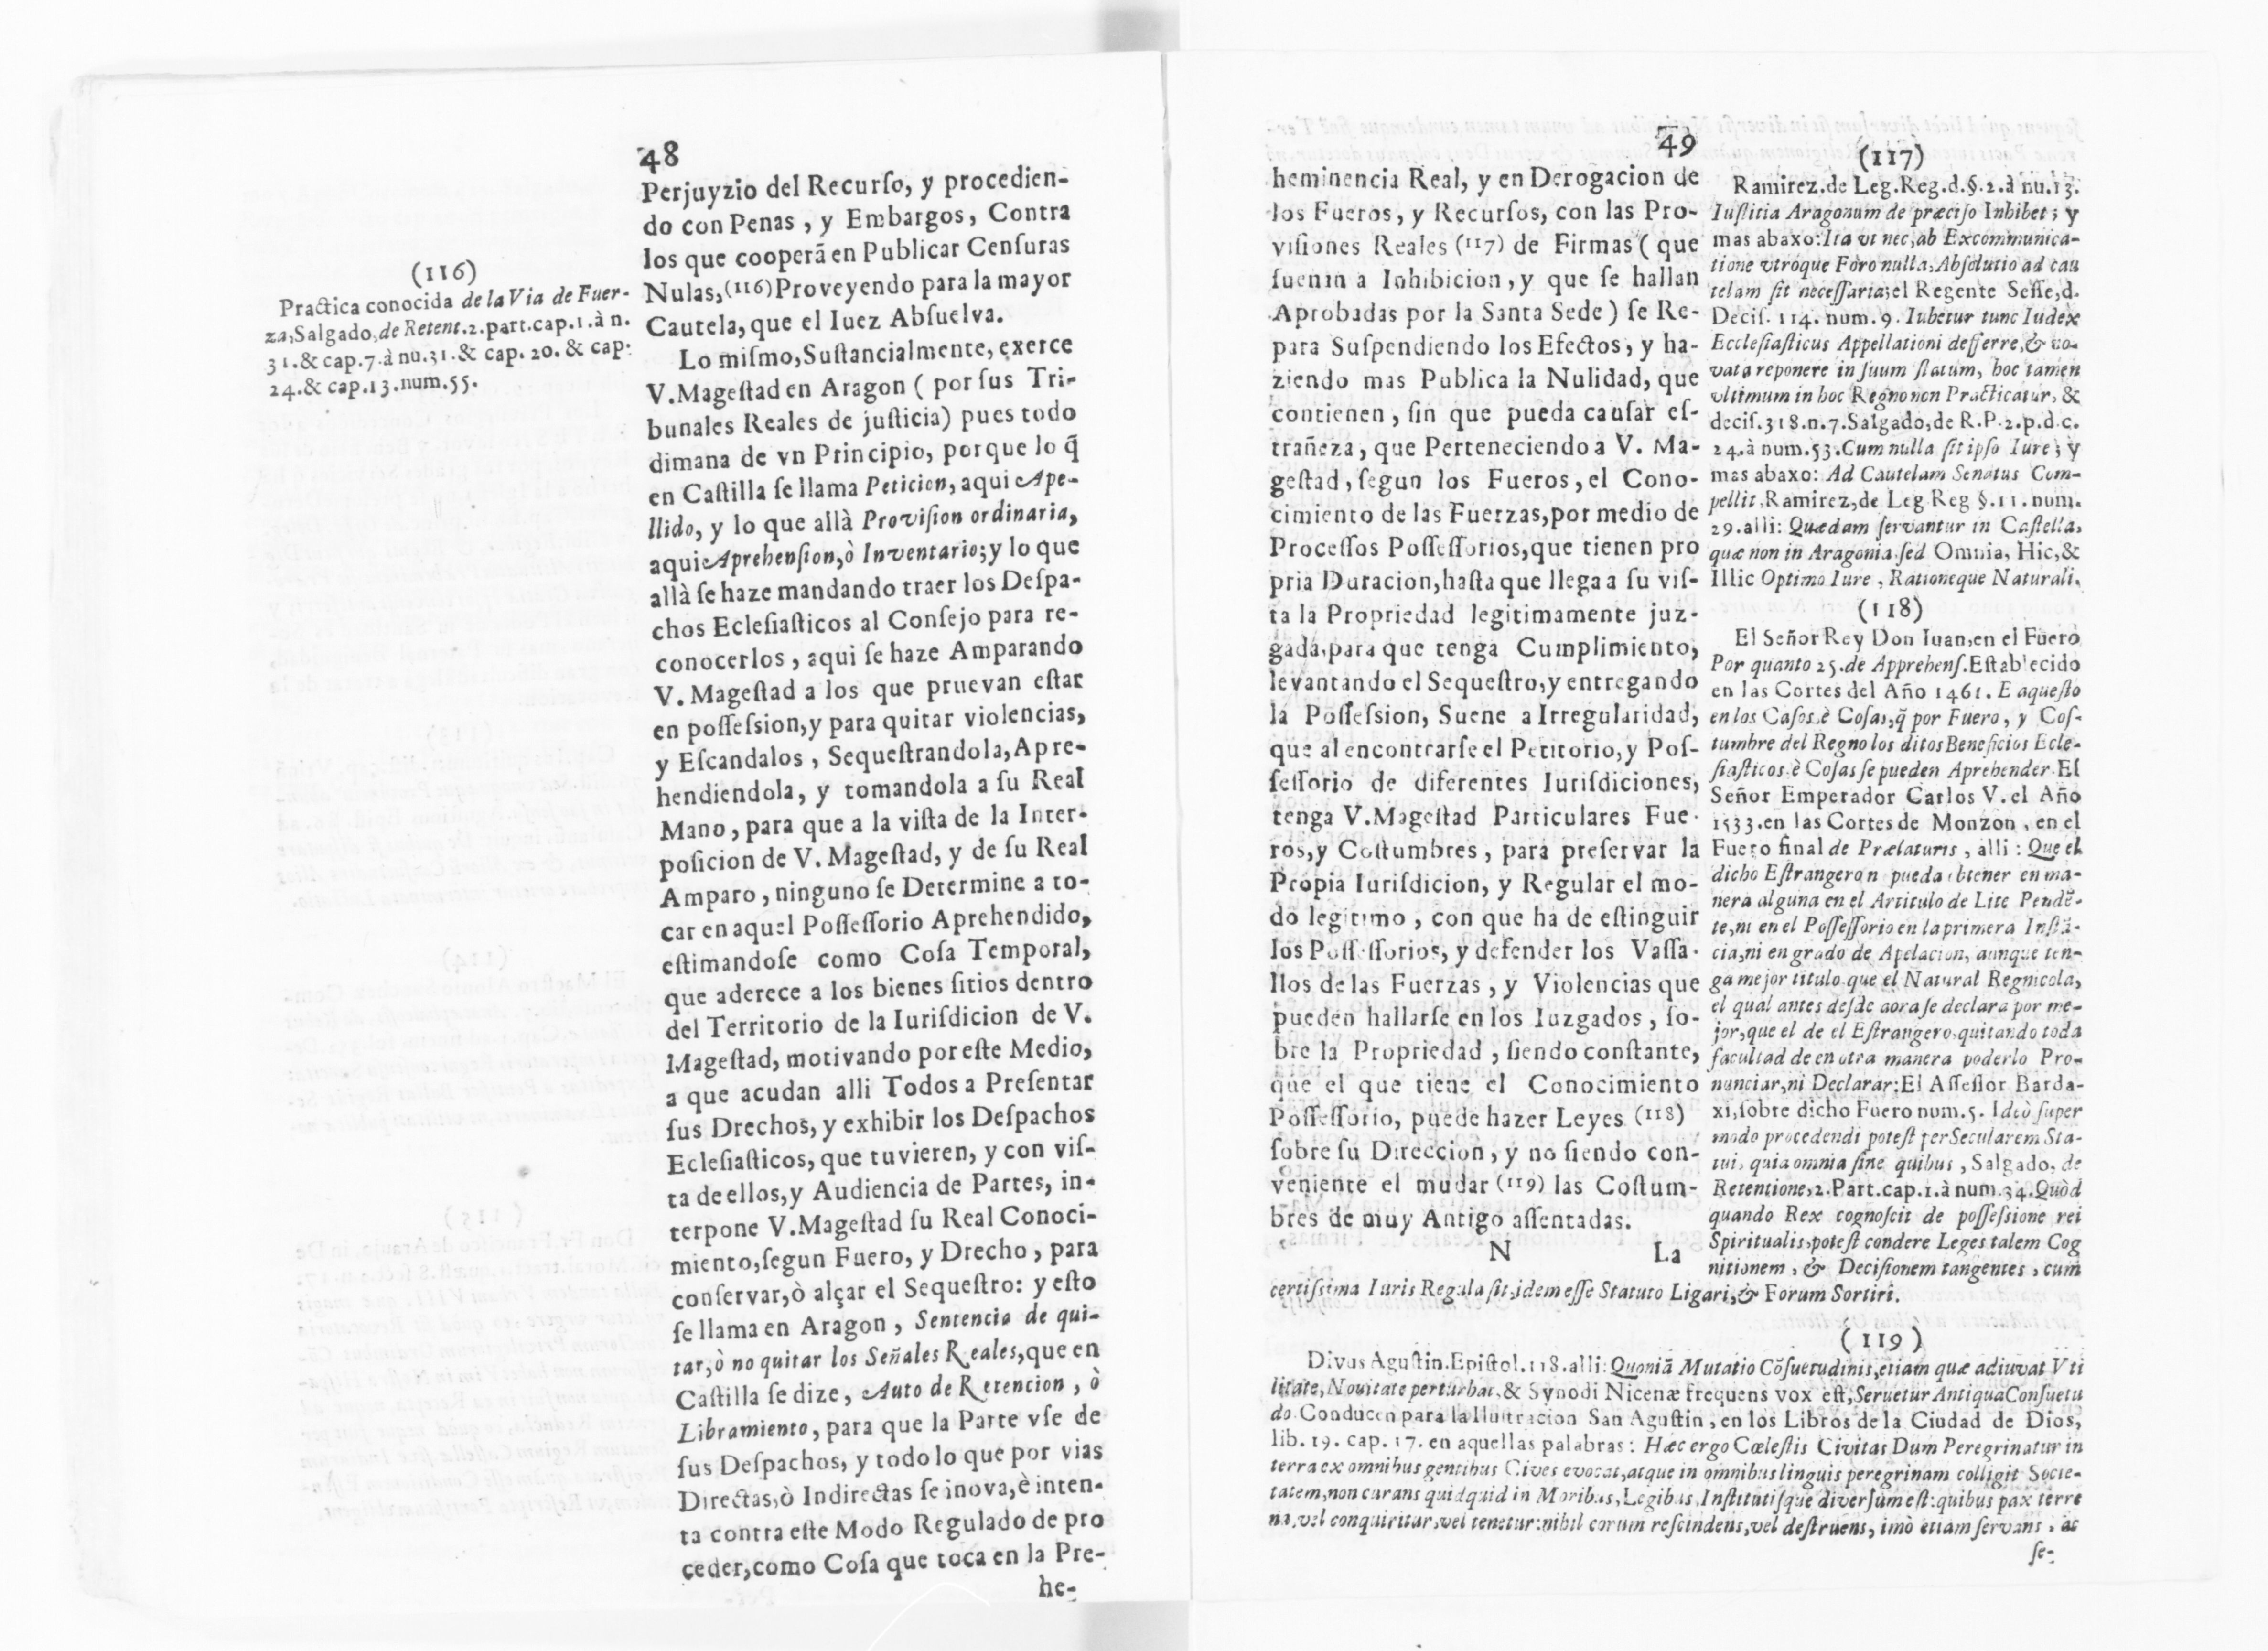 48
Perjuyzio del Recurſo, y procedien-
do con Penas, y Embargos, Contra
los que cooperã en Publicar Cenſuras
Nulas,(116)Proveyendo para la mayor
Cautela, que el Iuez Abſuelva.
Lo miſmo,Suſtancialmente, exerce
V.Mageſtad en Aragon ( por ſus Tri-
bunales Reales de juſticia) pues todo
dimana de vn Principio, porque lo q̃
en Caſtilla ſe llama Peticion, aqui Ape-
llido, y lo que allà Proviſion ordinaria,
aqui Aprehenſion,ò Inventario; y lo que
allà ſe haze mandando traer los Deſpa-
chos Ecleſiaſticos al Conſejo para re-
conocerlos, aqui ſe haze Amparando
V. Mageſtad a los que pruevan eſtar
en poſſeſsion,y para quitar violencias,
y Eſcandalos, Sequeſtrandola,Apre-
hendiendola, y tomandola a ſu Real
Mano, para que a la viſta de la Inter-
poſicion de V. Mageſtad, y de ſu Real
Amparo, ninguno ſe Determine a to-
car en aquel Poſſeſſorio Aprehendido,
eſtimandoſe como Coſa Temporal,
que aderece a los bienes ſitios dentro
del Territorio de la Iuriſdicion de V.
Mageſtad, motivando por eſte Medio,
a que acudan alli Todos a Preſentar
ſus Drechos, y exhibir los Deſpachos
Ecleſiaſticos, que tuvieren, y con viſ-
ta de ellos,y Audiencia de Partes, in-
terpone V.Mageſtad ſu Real Conoci-
miento,ſegun Fuero, y Drecho, para
conſervar,ò alçar el Sequeſtro: y eſto
ſe llama en Aragon, Sentencia de qui-
tar,ò no quitar los Señales Reales,que en
Caſtilla ſe dize, Auto de Retencion, ò
Libramiento, para que la Parte vſe de
ſus Deſpachos, y todo lo que por vias
Directas,ò Indirectas ſe inova,è inten-
ta contra eſte Modo Regulado de pro
ceder,como Coſa que toca en la Pre-
he-
(116)
Practica conocida de la Via de Fuer-
za,Salgado,de Retent.2.part.cap.1.à n.
31.& cap.7.à nu.31.& cap. 20. & cap:
24.& cap.13.num.55.
49
heminencia Real, y en Derogacion de
los Fueros, y Recurſos, con las Pro-
viſiones Reales (117) de Firmas ( que
ſuenan a Inhibicion, y que ſe hallan
Aprobadas por la Santa Sede ) ſe Re-
para Suſpendiendo los Efectos, y ha-
ziendo mas Publica la Nulidad, que
contienen, ſin que pueda cauſar eſ-
trañeza, que Perteneciendo a V. Ma-
geſtad, ſegun los Fueros, el Cono-
cimiento de las Fuerzas,por medio de
Proceſſos Poſſeſſorios,que tienen pro
pria Duracion,haſta que llega a ſu viſ-
ta la Propriedad legitimamente juz-
gada,para que tenga Cumplimiento,
levantando el Sequeſtro,y entregando
la Poſſeſsion, Suene a Irregularidad,
que al encontrarſe el Petitorio,y Poſ-
ſeſſorio de diferentes Iuriſdiciones,
tenga V.Mageſtad Particulares Fue-
ros,y Coſtumbres, para preſervar la
Propia Iuriſdicion, y Regular el mo-
do legitimo, con que ha de eſtinguir
los Poſſeſſorios, y defender los Vaſſa-
llos de las Fuerzas, y Violencias que
pueden hallarſe en los Iuzgados, ſo-
bre la Propriedad, ſiendo conſtante,
que el que tiene el Conocimiento
Poſſeſſorio, puede hazer Leyes (118)
ſobre ſu Direccion, y no ſiendo con-
veniente el mudar (119) las Coſtum-
bres de muy Antigo aſſentadas.
N La
(117)
Ramirez.de Leg.Reg.d.§.2.à nu.13.
Iuſtitia Aragonum de præciſo Inhibet; y
mas abaxo:Ita vt nec,ab Excommunica-
tione vtroque Foro nulla,Abſolutio ad cau
telam ſit neceſſaria;el Regente Seſſe,d.
Deciſ. 114. num. 9. Iubetur tunc Iudex
Eccleſiaſticus Appellationi defferre,& no-
vata reponere in ſuum ſtatum, hoc tamen
vltimum in hoc Regno non Practicatur, &
deciſ.318.n.7.Salgado,de R.P.2.p.d.c.
24.à num.53.Cum nulla ſit ipſo Iure; y
mas abaxo: Ad Cautelam Senatus Com-
pellit,Ramirez,de Leg.Reg §.11. num.
29.alli: Quædam ſervantur in Caſtella,
quæ non in Aragonia,ſed Omnia, Hic,&
Illic Optimo Iure, Rationeque Naturali.
(118)
El Señor Rey Don Iuan,en el Fuero
Por quanto 25.de Apprehenſ.Eſtablecido
en las Cortes del Año 1461. E aqueſto
en los Caſos,è Coſas,q̃ por Fuero, y Coſ-
tumbre del Regno los ditos Beneficios Ecle-
ſiaſticos,è Coſas ſe pueden Aprehender.El
Señor Emperador Carlos V.el Año
1533.en las Cortes de Monzon, en el
Fuero final de Prælaturis, alli: Que el
dicho Eſtrangero n pueda obtener en ma-
nera alguna en el Articulo de Lite Pendẽ-
te,ni en el Poſſeſſorio en la primera Inſtã-
cia,ni en grado de Apelacion, aunque ten-
ga mejor titulo que el Natural Regnicola,
el qual antes deſde aora ſe declara por me-
jor,que el de el Eſtrangero,quitando toda
facultad de en otra manera poderlo Pro-
nunciar,ni Declarar:El Aſſeſſor Barda-
xi,ſobre dicho Fuero num.5. Ideò ſuper
modo procedendi poteſt per Secularem Sta-
tui, quia omnia ſine quibus, Salgado, de
Retentione,2.Part.cap.1.à num.34.Quòd
quando Rex cognoſcit de poſſeſsione rei
Spiritualis,poteſt condere Leges talem Cog
nitionem, & Deciſionem tangentes, cum
certiſsima Iuris Regula ſit,idem eſſe Statuto Ligari,& Forum Sortiri.
(119)
Divus Aguſtin.Epiſtol.118.alli:Quoniã Mutatio Cõſuetudinis,etiam quæ adiuvat Vti
litate, Novitate perturbat,& Synodi Nicenæ frequens vox eſt,Seruetur Antiqua Conſuetu
do.Conducen para la Iluſtracion San Aguſtin, en los Libros de la Ciudad de Dios,
lib. 19. cap. 17. en aquellas palabras: Hæc ergo Cœleſtis Civitas Dum Peregrinatur in
terra ex omnibus gentibus Cives evocat,atque in omnibus linguis peregrinam colligit Socie-
tatem,non curans quidquid in Moribus,Legibus,Inſtitutiſque diverſum eſt:quibus pax terre
na,vel conquiritur,vel tenetur:nihil eorum reſcindens,vel deſtruens, imò etiam ſervans, ac
ſe-